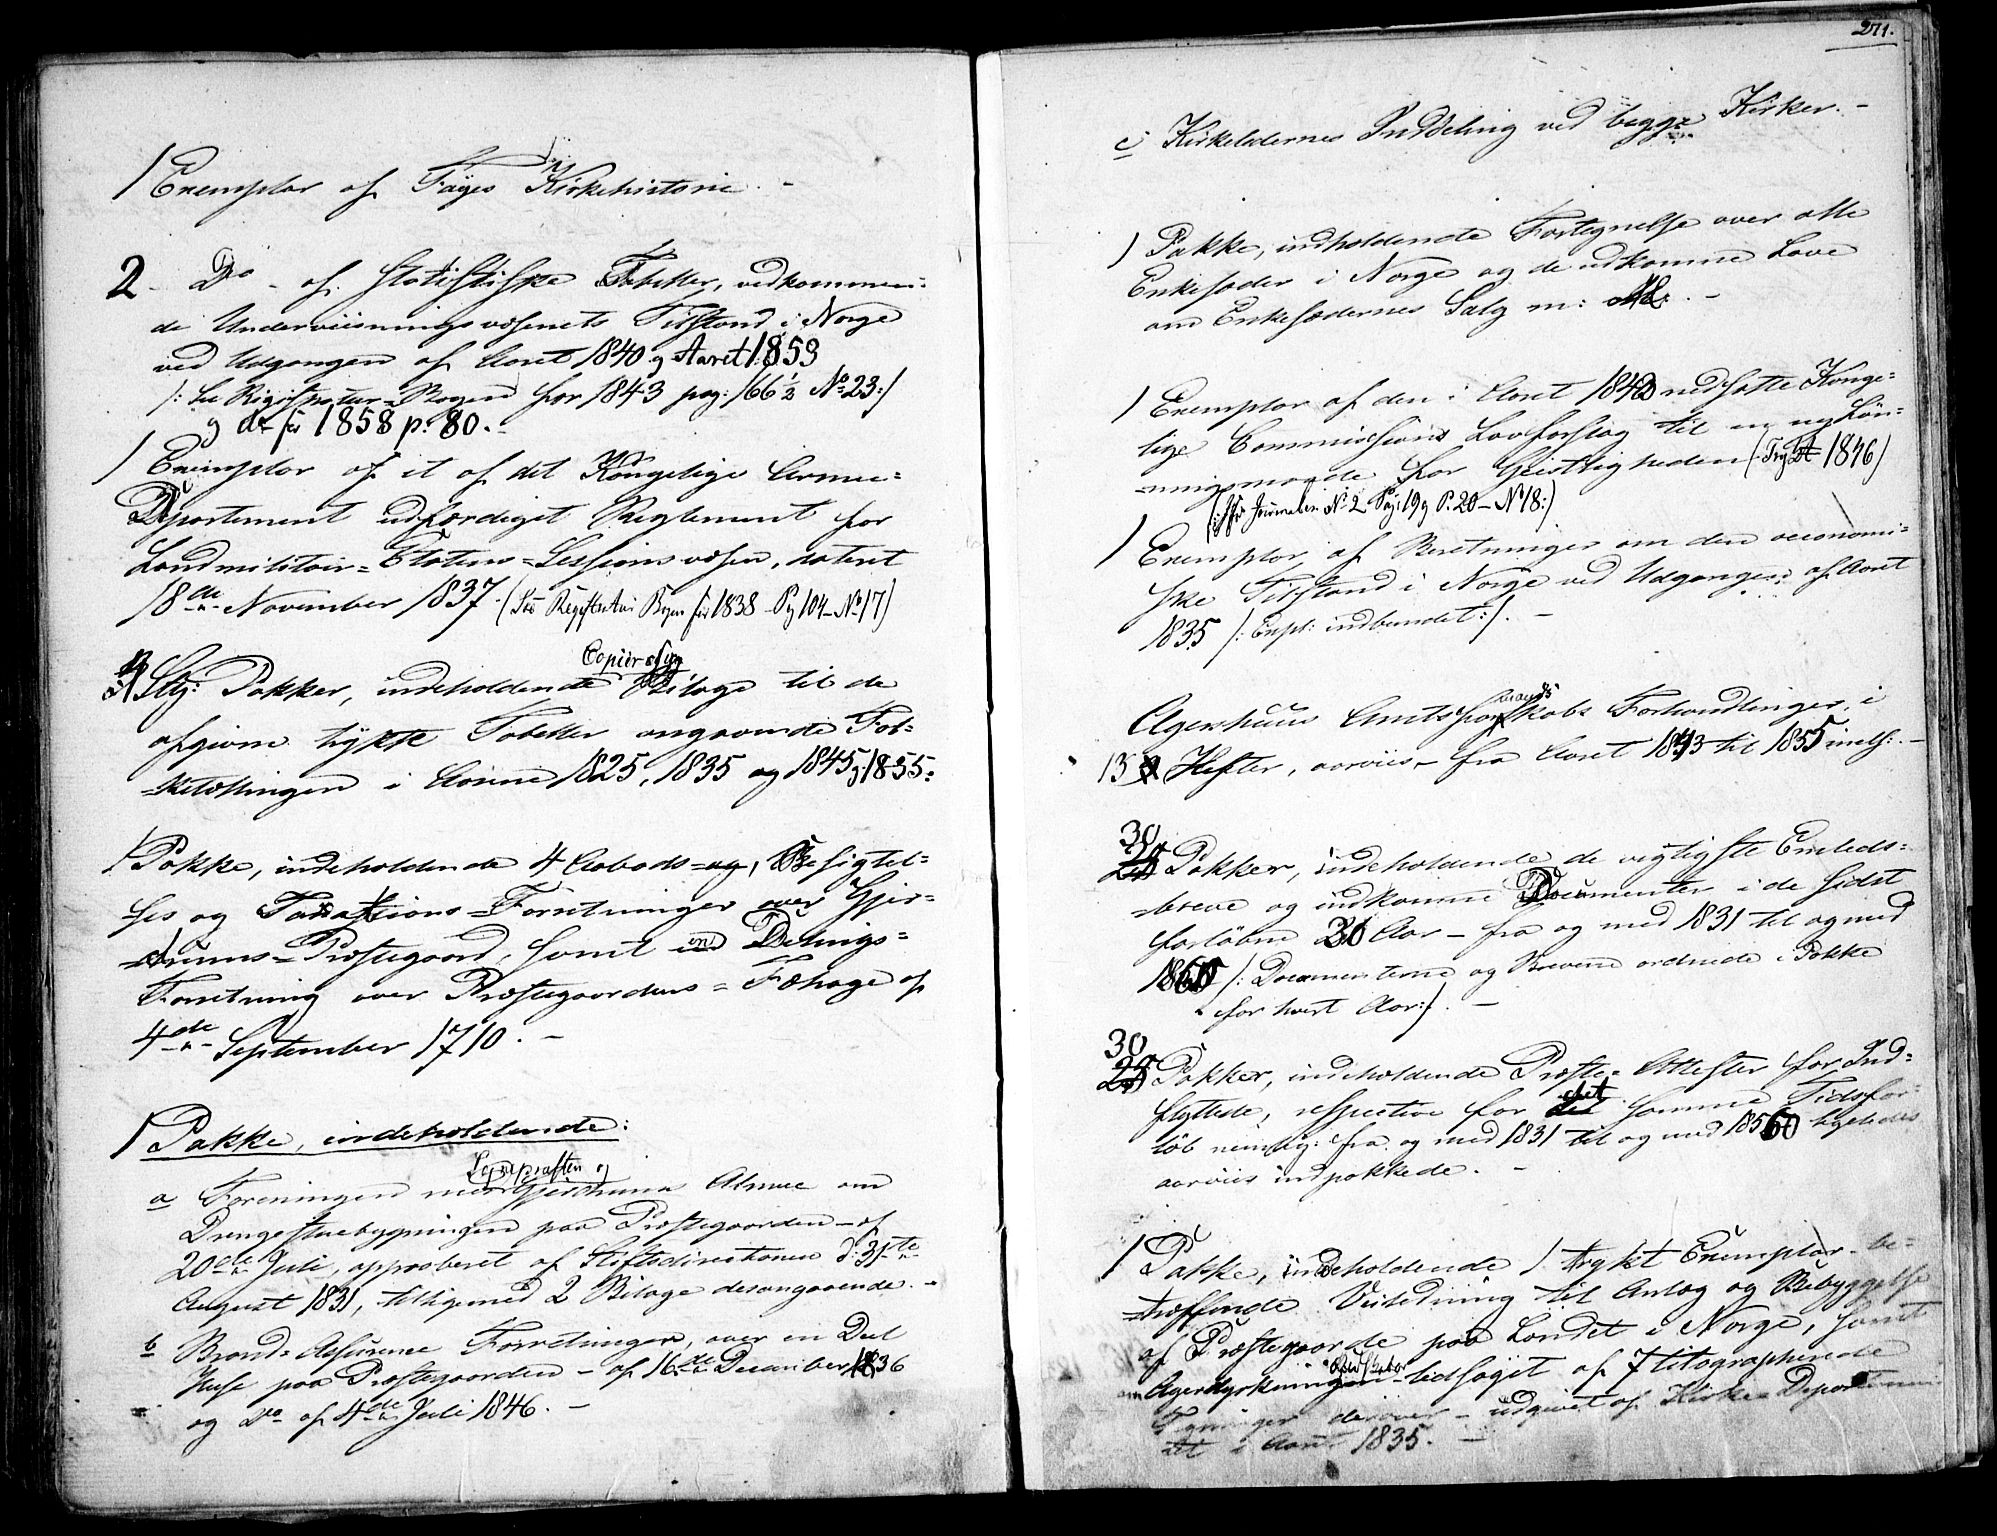 1 Exemplar af Fayes Kirkehistorie. -
2 - Do - af statistiske Tabeller, vedkommen=
de Underviisningsvæsenets Tilstand i Norge
ved Udgangen af Aaret 1840 og Aaret 1853
/: See Registratur-Bogen for 1843 pag: 166 1/2 No 23:/
og do for 1858 p. 80.
1 Exemplar af et af det Kongelige Armee=
Departement udfærdiget Reglement for
Landmilitair=Etatens=Sessionsvæsen, dateret
18de November 1837. (See Registratur Bogen for 1838 Pag 104 - No 17)
4 Stkr: Pakker, indeholdende Copier af og Bilage til de
afgivne trykte Tabeller angaaende Fol=
ketællingen i Aarene 1825, 1835 og 1845 og 1855.
1 Pakke, indeholdende 4 Aabods=og, Besigtel=
ses og Taxations=Forretninger over Gjer=
drums=Præstegaard, samt en Delings=
Forretning over Præstegaardens=Fæhage af
4de September 1710. -
1 Pakke, indeholdende:
a Foreningen med Sognepræsten og Gjerdrums Almue om
Drengestuebygningen paa Præstegaarden - af
20de Juli, approberet af Stiftsdirektionen d: 31te
August 1831, tilligemed 2 Bilage desangaaende. -
b Brand=Assurence Forretningen, over en Deel
Huse paa Præstegaarden - af 16de December 1836
og Do af 4de Juli 1846. -
271.
c Kirkeladernes Inddeling ved begge Kirker. -
1 Pakke, indholdende Fortegnelse over alle
Enkesæder i Norge og de udkomne Love
om Enkesædernes Salg m:
1 Exemplar af den i Aaret 1842 nedsatte Konge=
lige Commissions Lovforslag til en ny Løn=
ningsmaade for Geistligheden (Trykt 1846)
Journalen No 2 Pag: 19 og P. 20 - No 18:)
1 Exemplar, af Beretninger om den oeconomi=
ske Tilstand i Norge ved Udgangen af Aaret
1835 /: Expl: indbundet:/. -
Agershuus Amtsformandskabs Forhandlinger, i
13 Hefter, aarviis - fra Aaret 1843 til 1855 incls: -
30 Pakker, indeholdende de vigtigste Embeds=
breve og indkomne Documenter i de sidst
forløbne 30 Aar - fra og med 1831 til og med
1860 /: Documenterne og Brevene ordnede i Pakke
for hvert Aar:/. -
30
Pakker, indeholdende Præste=Attester for Ind=
flyttede, respective for det samme Tidsfor=
løb nemlig: fra og med 1831 til og med 1860 ligeledes
aarviis indpakkede. -
1 Pakke, indeholdende 1 trykt Exemplar be=
træffende Veiledning til Anlæg og Bebyggelse
af Præstegaarde paa Landet i Norge, samt
om Agerdyrkning - ledsaget af 7 litographerede
Tegninger derover - udgivet af Kirke=Departemen
tet i Aaret 1835. -